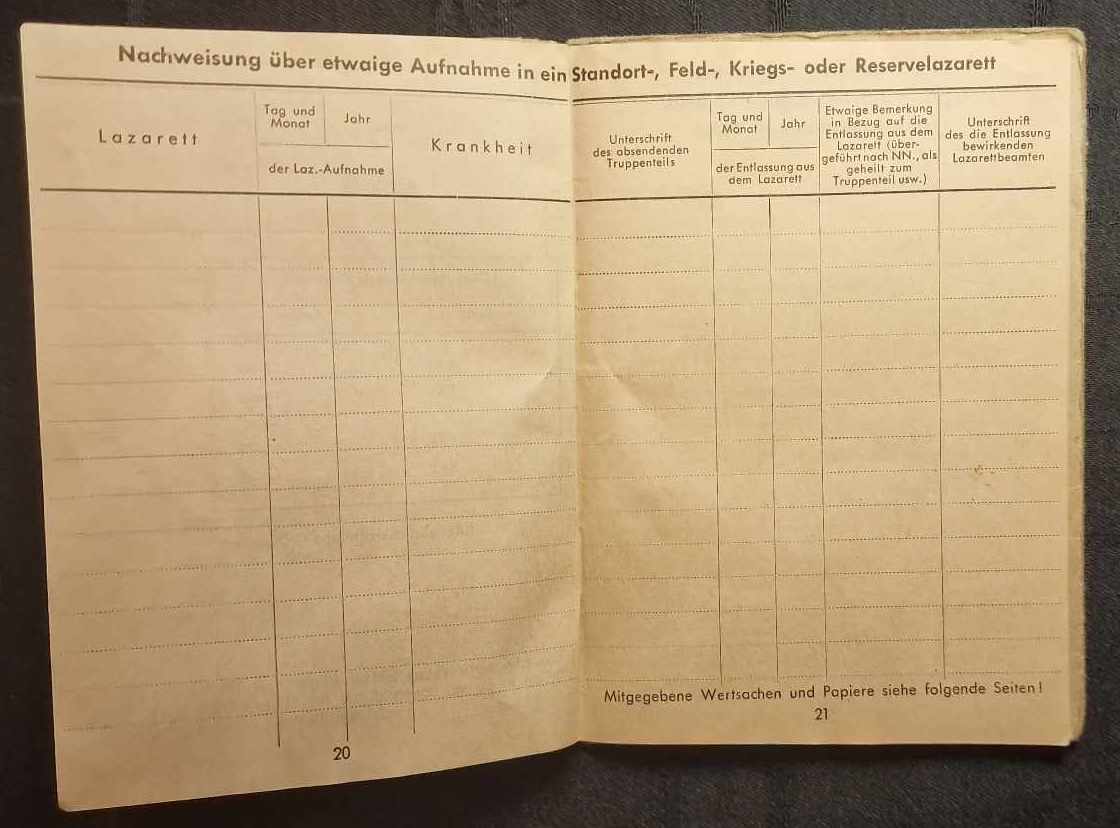 Nachweisung über etwaige Aufnahme in ein Standort-, Feld-, Kriegs- oder Reservelazarett
Lazarett
Tag und
Monat
Jahr
der Laz.-Aufnahme
Krankheit
Unterschrift
des absendenden
Truppenteils
Tag und
Monat
Jahr
der Entlassung aus
dem Lazarett
Etwaige Bemerkung
in Bezug auf die
Entlassung aus dem
Lazarett (über-
geführt nach NN., als
geheilt zum
Truppenteil usw.)
Unterschrift
des die Entlassung
bewirkenden
Lazarettbeamten
Mitgegebene Wertsachen und Papiere siehe folgende Seiten!
20
21